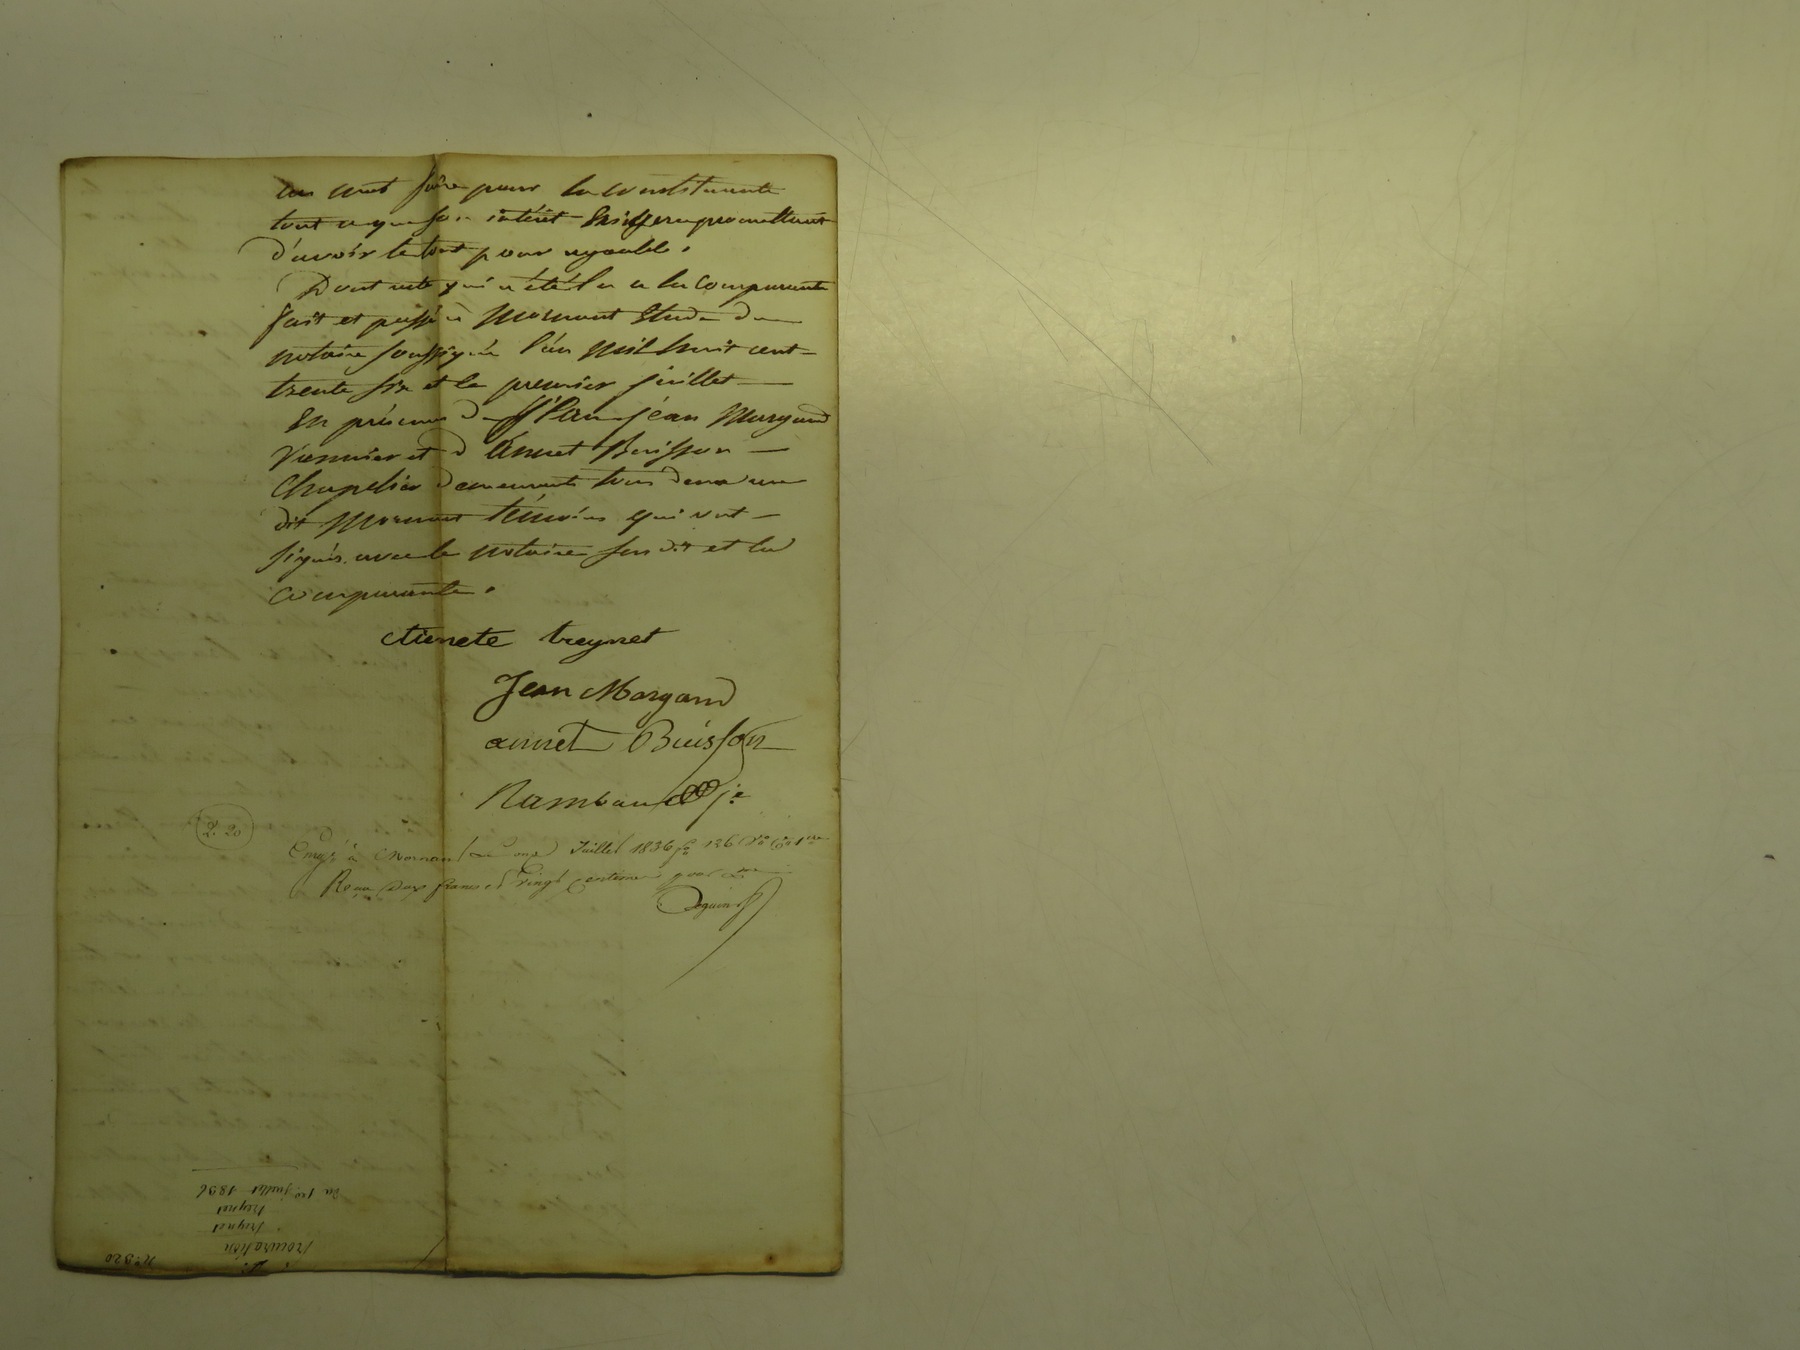 un mot faire pour la constituante
tout ce que son intérêt Exigera promettant
d'avoir le tout pour agréable.
Dont acte qui a été lu a la Comparante
fait et passé à Mornant Etude du
notaire soussigné l'an Mil huit cent
trente six et le premier juillet
En présence de Jean Margand
et d'Annet Buisson
Chapelier demeurants tous deux au
dit Mornant témoins qui ont
signés avec le notaire susdit et la
comparante.
etienete treynet
Jean Margand
annet Buisson
Rambaud
2. 20
Enregé à Mornant Le onze Juillet 1836 fo 126 Vo Ce 1ere
Reçu Deux francs et Vingt centimes pour
Seguin
No 320
Procuration
treynet
treynet
Du 1er juillet 1836